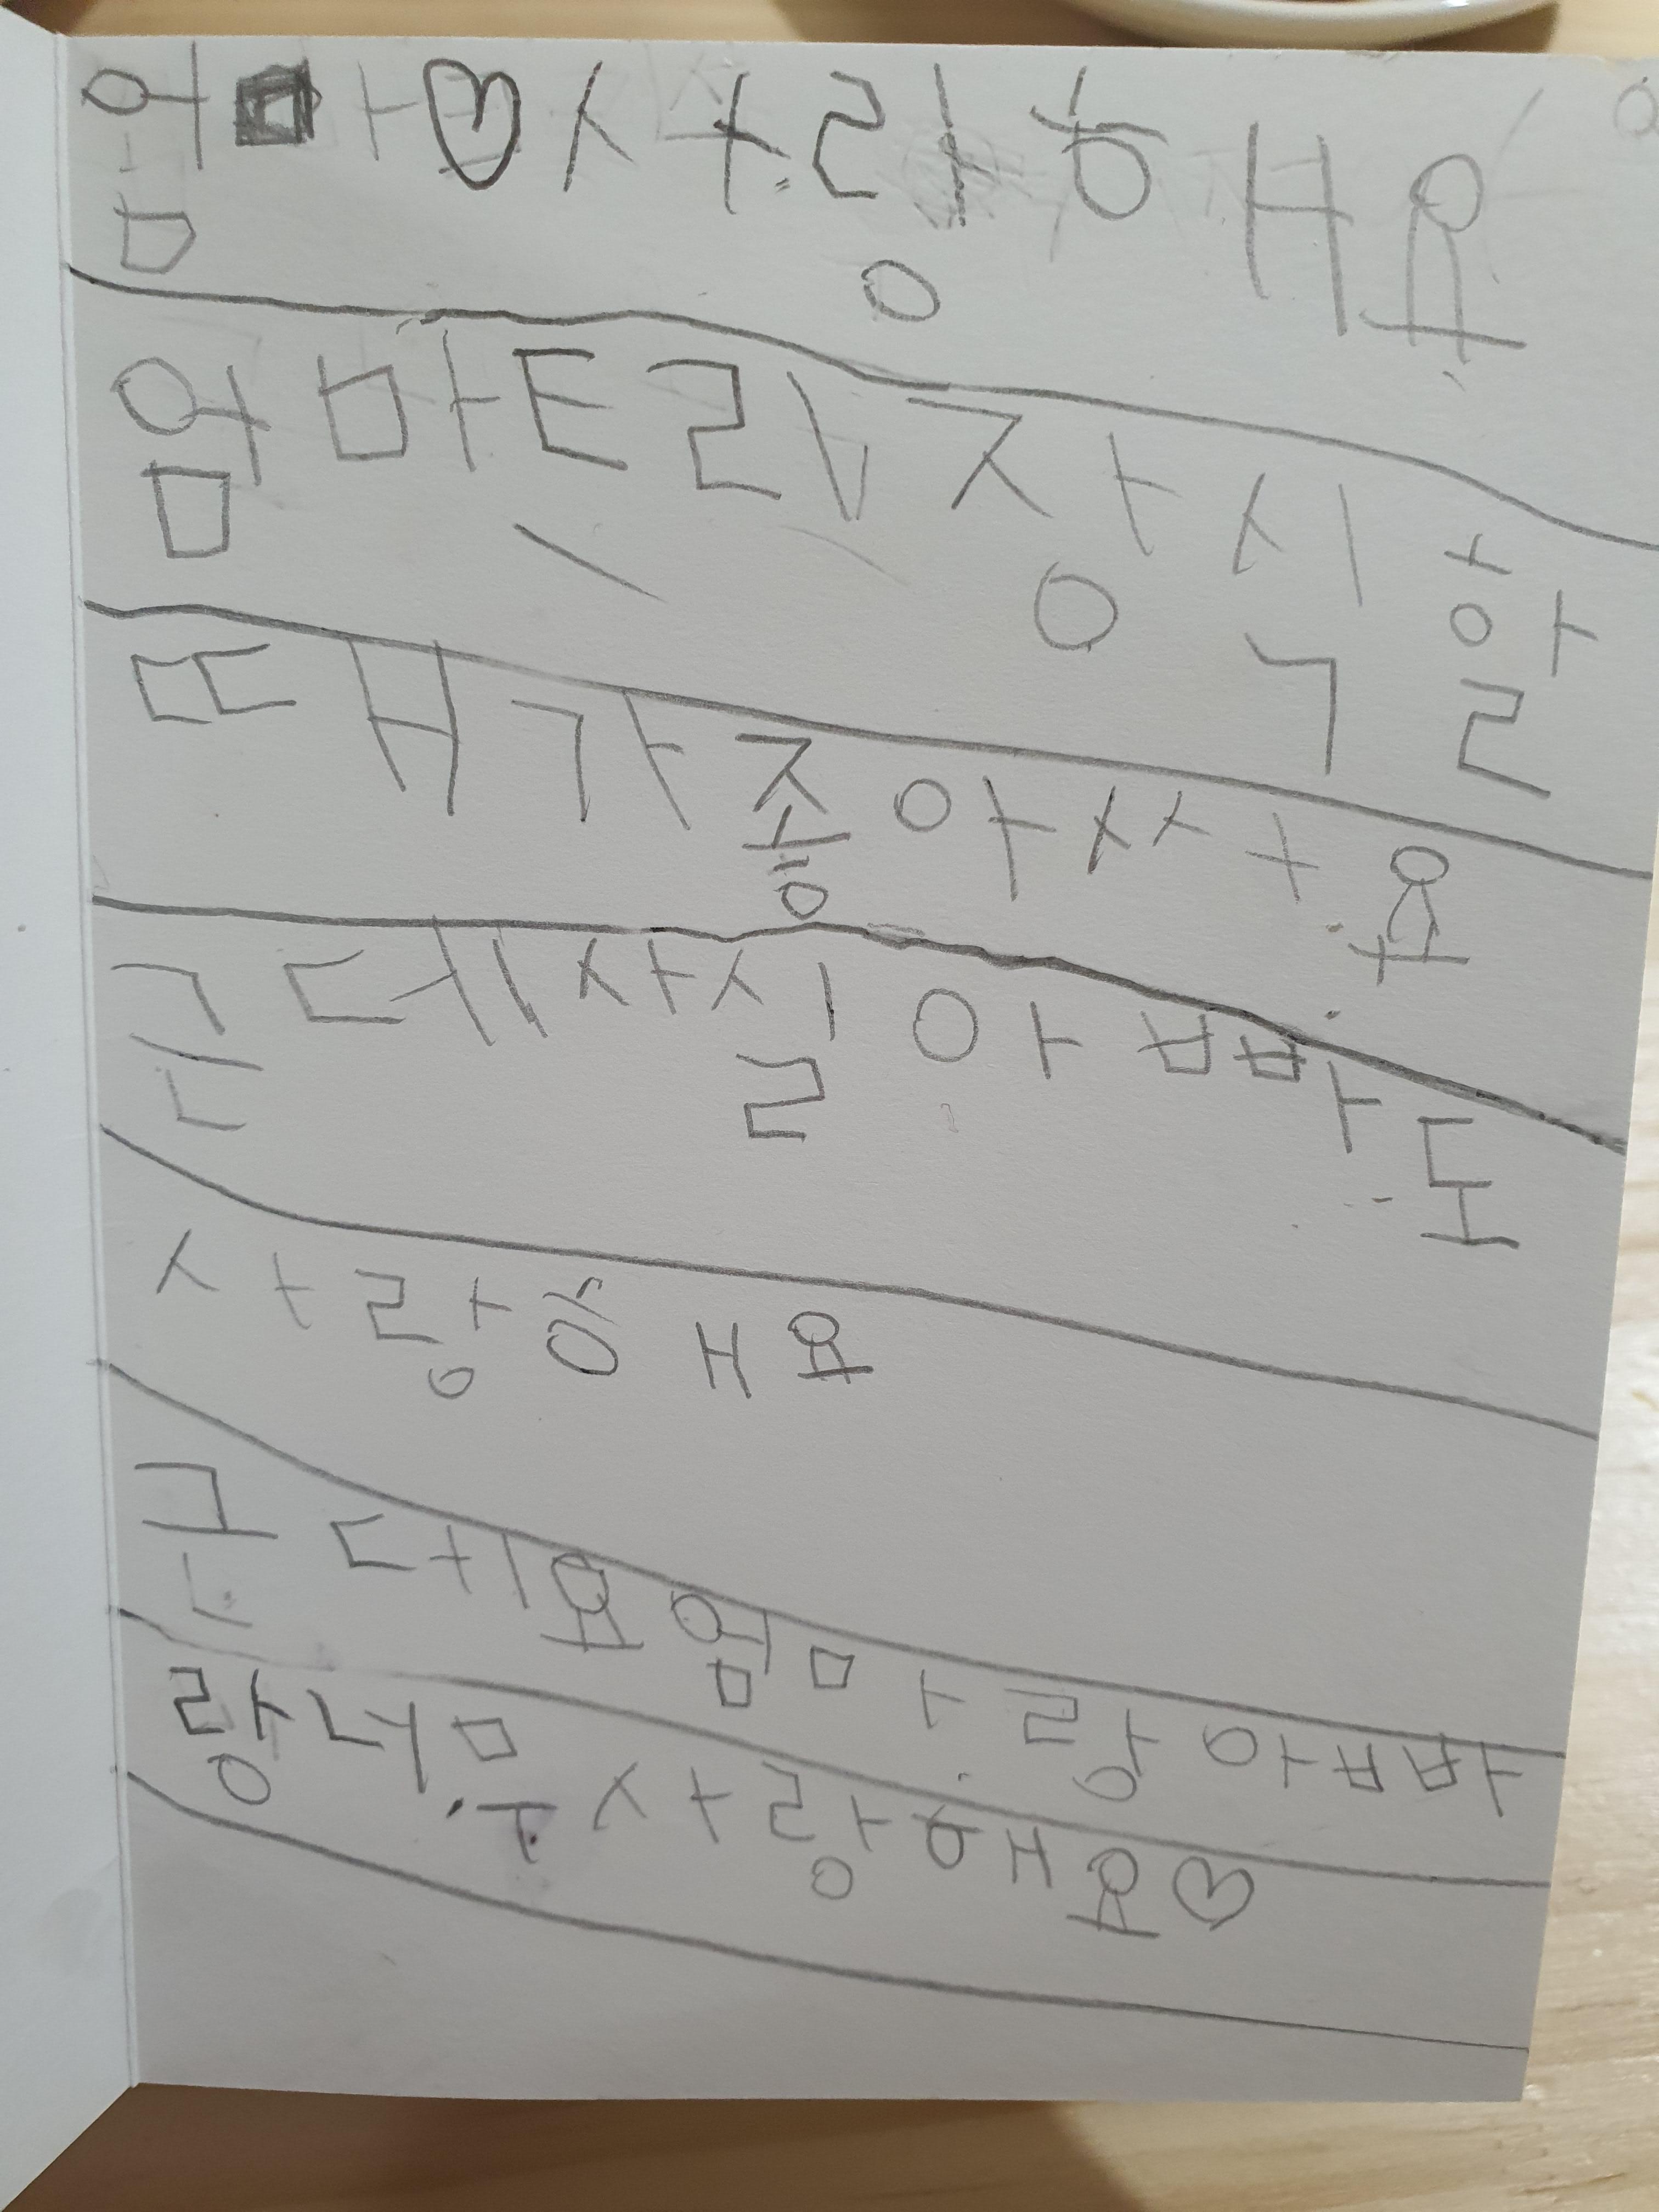 엄마♡사랑해요
엄마트리장식할
때가좋아써요
근데사실아빠도
사랑해요
근데요엄마랑아빠
랑너무사랑해요♡